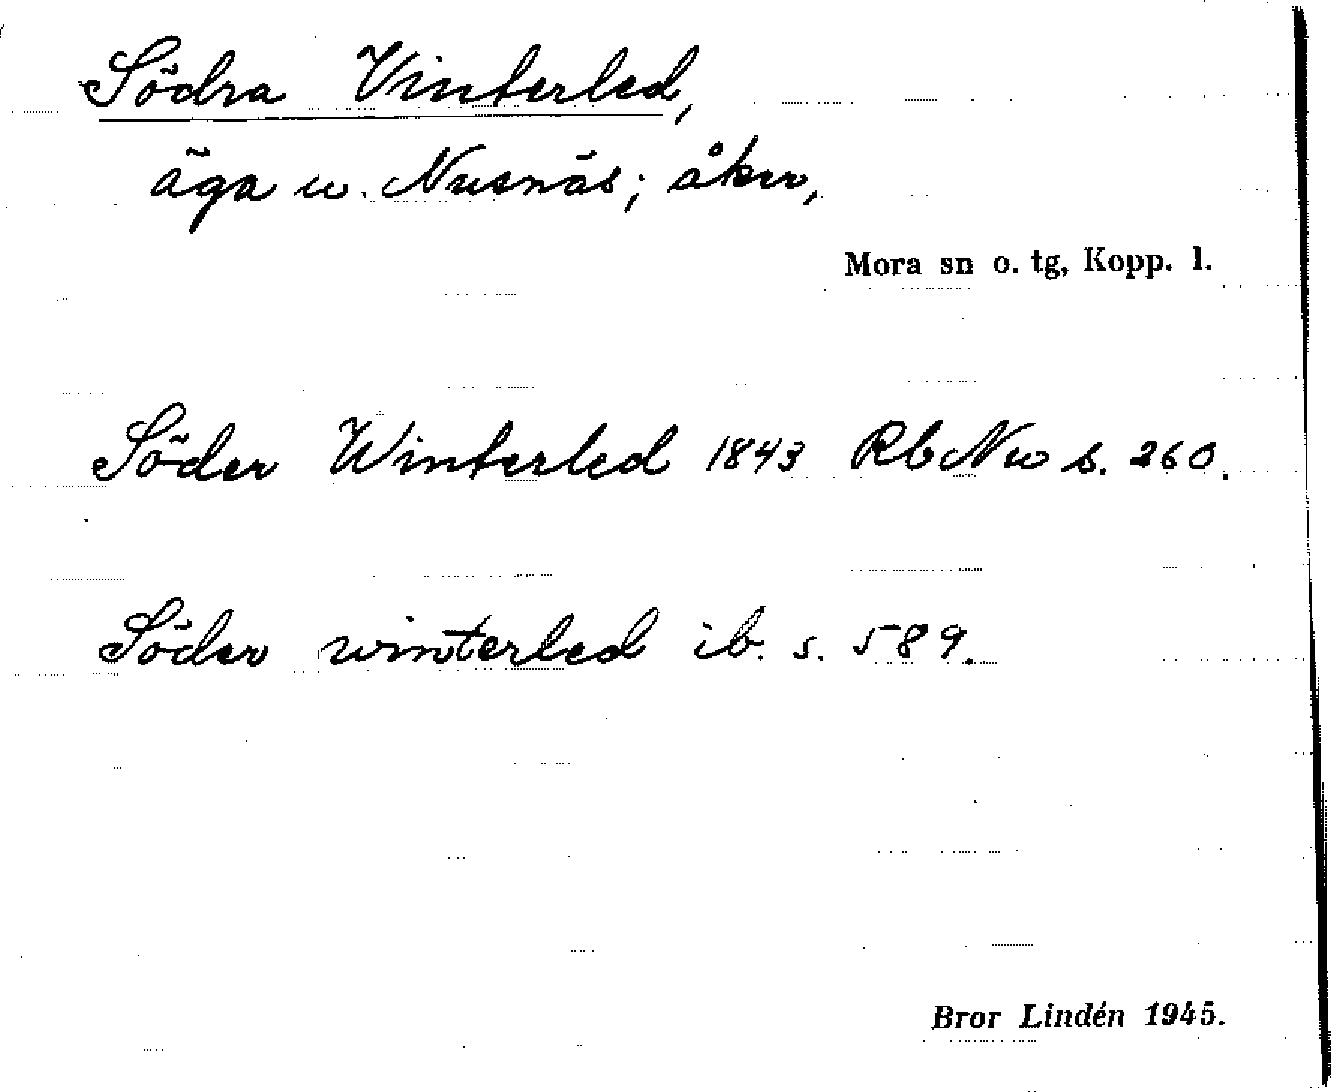 Södra Vinterled,
äga u. Nusnäs; åker,
Mora sn o. tg, Kopp. l.
Söder Winterled 1843 Rb Nu s. 260.
Söder winterled ib. s. 589.
Bror Lindén 1945.